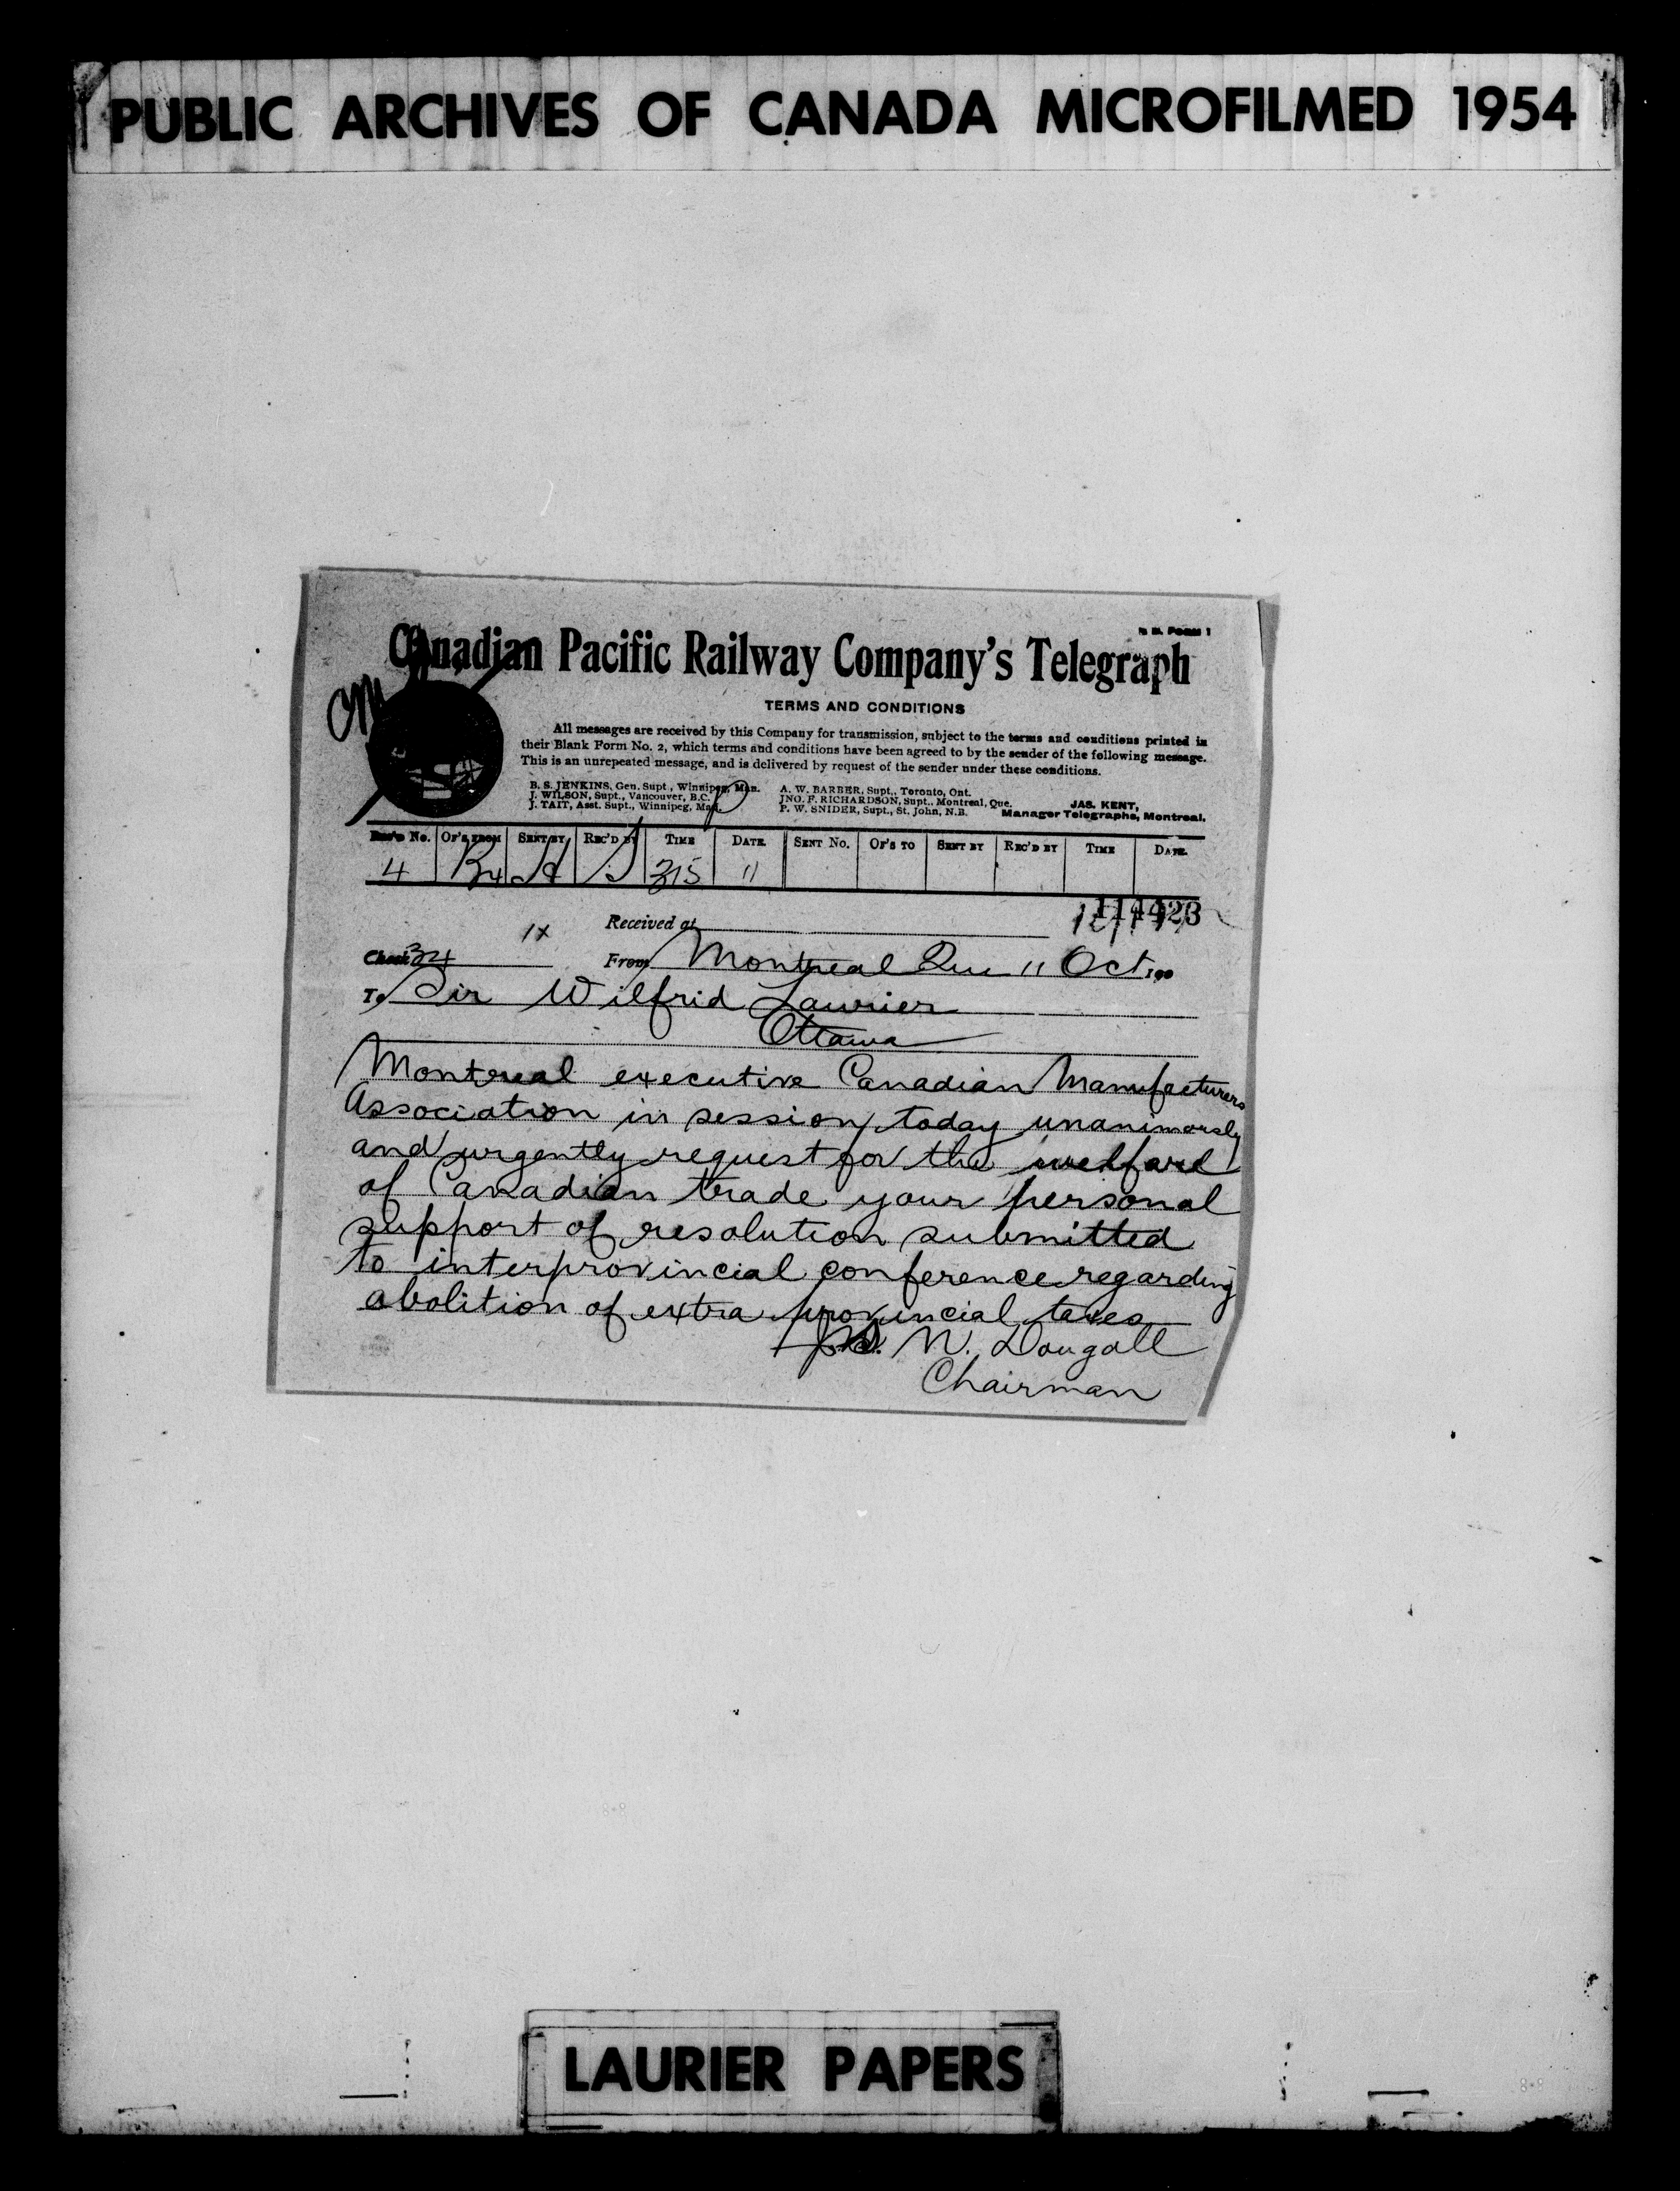 PUBLIC ARCHIVES OF CANADA MICROFILMED 1954
Canadian Pacific Railway Company's Telegraph
TERMS AND CONDITIONS
All messages are received by this Company for transmission, subject to the terms and conditions printed in
their Blank Form No. 2, which terms and conditions have been agreed to by the sender of the following message.
This is an unrepeated message, and is delivered by request of the sender under these conditions.
B. S. JENKINS, Gen. Supt., Winnipeg, Man.
J. WILSON, Supt., Vancouver, B.C.
J. TAIT, Asst. Supt., Winnipeg, Man.
A. W. BARBER, Supt., Toronto, Ont.
JNO. F. RICHARDSON, Supt., Montreal, Que.
P. W. SNIDER, Supt., St. John, N.B.
JAS. KENT,
Manager Telegraphs, Montreal.
Rec'd No. Of's from Sent by Rec'd by Time Date Sent No. Of's to Sent by Rec'd by Time Date
4 315 11
Received at
Check 34 1x From Montreal Que 11 Oct 190
To Sir Wilfrid Laurier
Ottawa
Montreal executive Canadian Manufacturers
Association in session today unanimously
and urgently request for the welfare
of Canadian trade your personal
support of resolution submitted
to interprovincial conference regarding
abolition of extra provincial taxes
N. Dougall
Chairman
LAURIER PAPERS